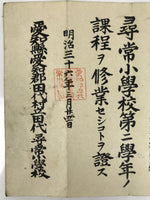 尋常小學校第二學年ノ
課程ヲ修業セシコトヲ證ス
明治三十六年三月廿四日
愛知縣愛知郡田代村立田代尋常小學校